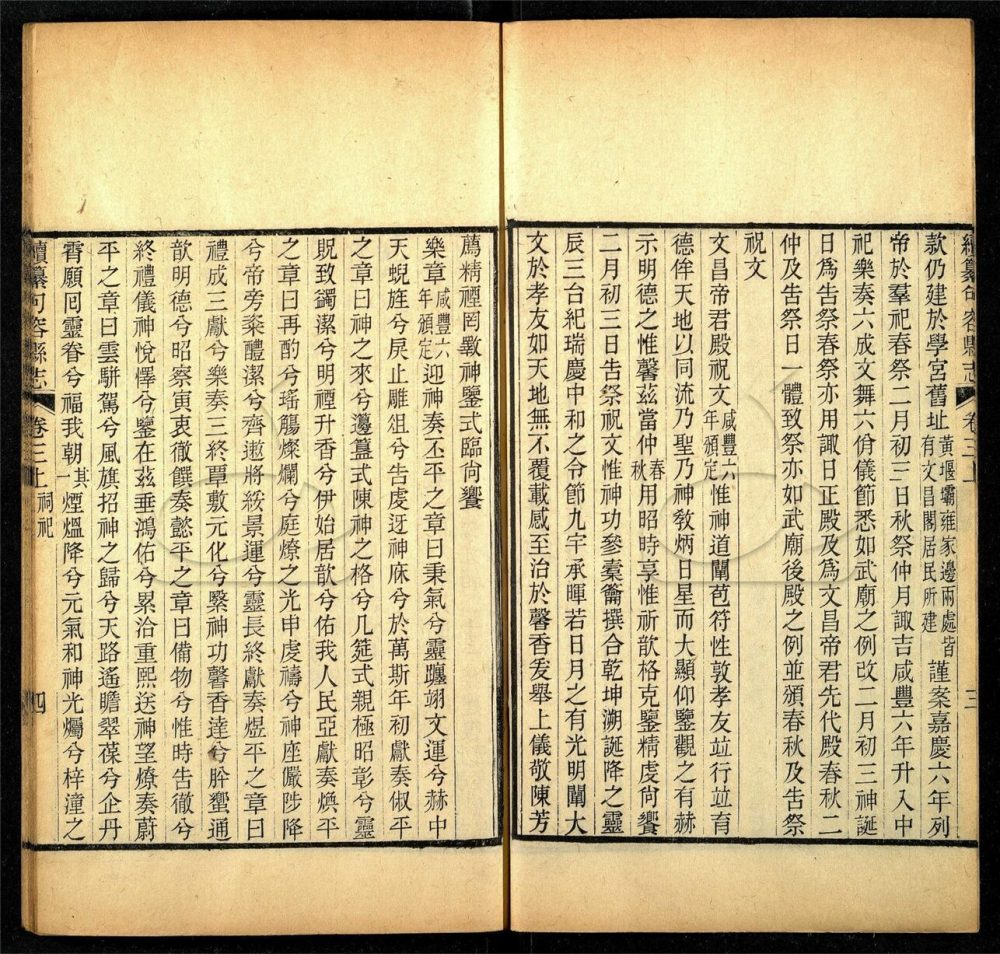 續纂句容縣志 卷三上 三
款仍建於學宮舊址黃堰壩雍家邊兩處皆有文昌閣居民所建謹案嘉慶六年列
帝於羣祀春祭二月初三日秋祭仲月諏吉咸豐六年升入中
祀樂奏六成文舞六佾儀節悉如武廟之例改二月初三神誕
日為告祭春祭亦用諏日正殿及為文昌帝君先代殿春秋二
仲及告祭日一體致祭亦如武廟後殿之例並頒春秋及告祭
祝文
文昌帝君殿祝文咸豐六年頒定惟神道闡苞符性敦孝友竝行竝育
德侔天地以同流乃聖乃神教炳日星而大顯仰鑒觀之有赫
示明德之惟馨茲當仲春秋用昭時享惟祈歆格克鑒精虔尙饗
二月初三日告祭祝文惟神功參橐籥撰合乾坤溯誕降之靈
辰三台紀瑞慶中和之令節九宇承暉若日月之有光明闡大
文於孝友如天地無不覆載感至治於馨香爰舉上儀敬陳芳
薦精禋罔斁神鑒式臨尙饗
樂章咸豐六年頒定迎神奏丕平之章曰秉氣兮靈驤翊文運兮赫中
天蜺旌兮戾止雕俎兮告虔迓神庥兮於萬斯年初獻奏俶平
之章曰神之來兮籩簋式陳神之格兮几筵式親極昭彰兮靈
貺致蠲潔兮明禋升香兮伊始居歆兮佑我人民亞獻奏煥平
之章曰再酌兮瑤觴燦爛兮庭燎之光申虔禱兮神座儼陟降
兮帝旁粢醴潔兮齊遬將綏景運兮靈長終獻奏煜平之章曰
禮成三獻兮樂奏三終覃敷元化兮繄神功馨香達兮肸蠁通
歆明德兮昭察寅衷徹饌奏懿平之章曰備物兮惟時告徹兮
終禮儀神悅懌兮鑒在茲垂鴻佑兮累洽重熙送神望燎奏蔚
平之章曰雲駢駕兮風旗招神之歸兮天路遙瞻翠葆兮企丹
霄願回靈眷兮福我朝其一煙熅降兮元氣和神光燭兮梓潼之
續纂句容縣志 卷三上 祠祀 四